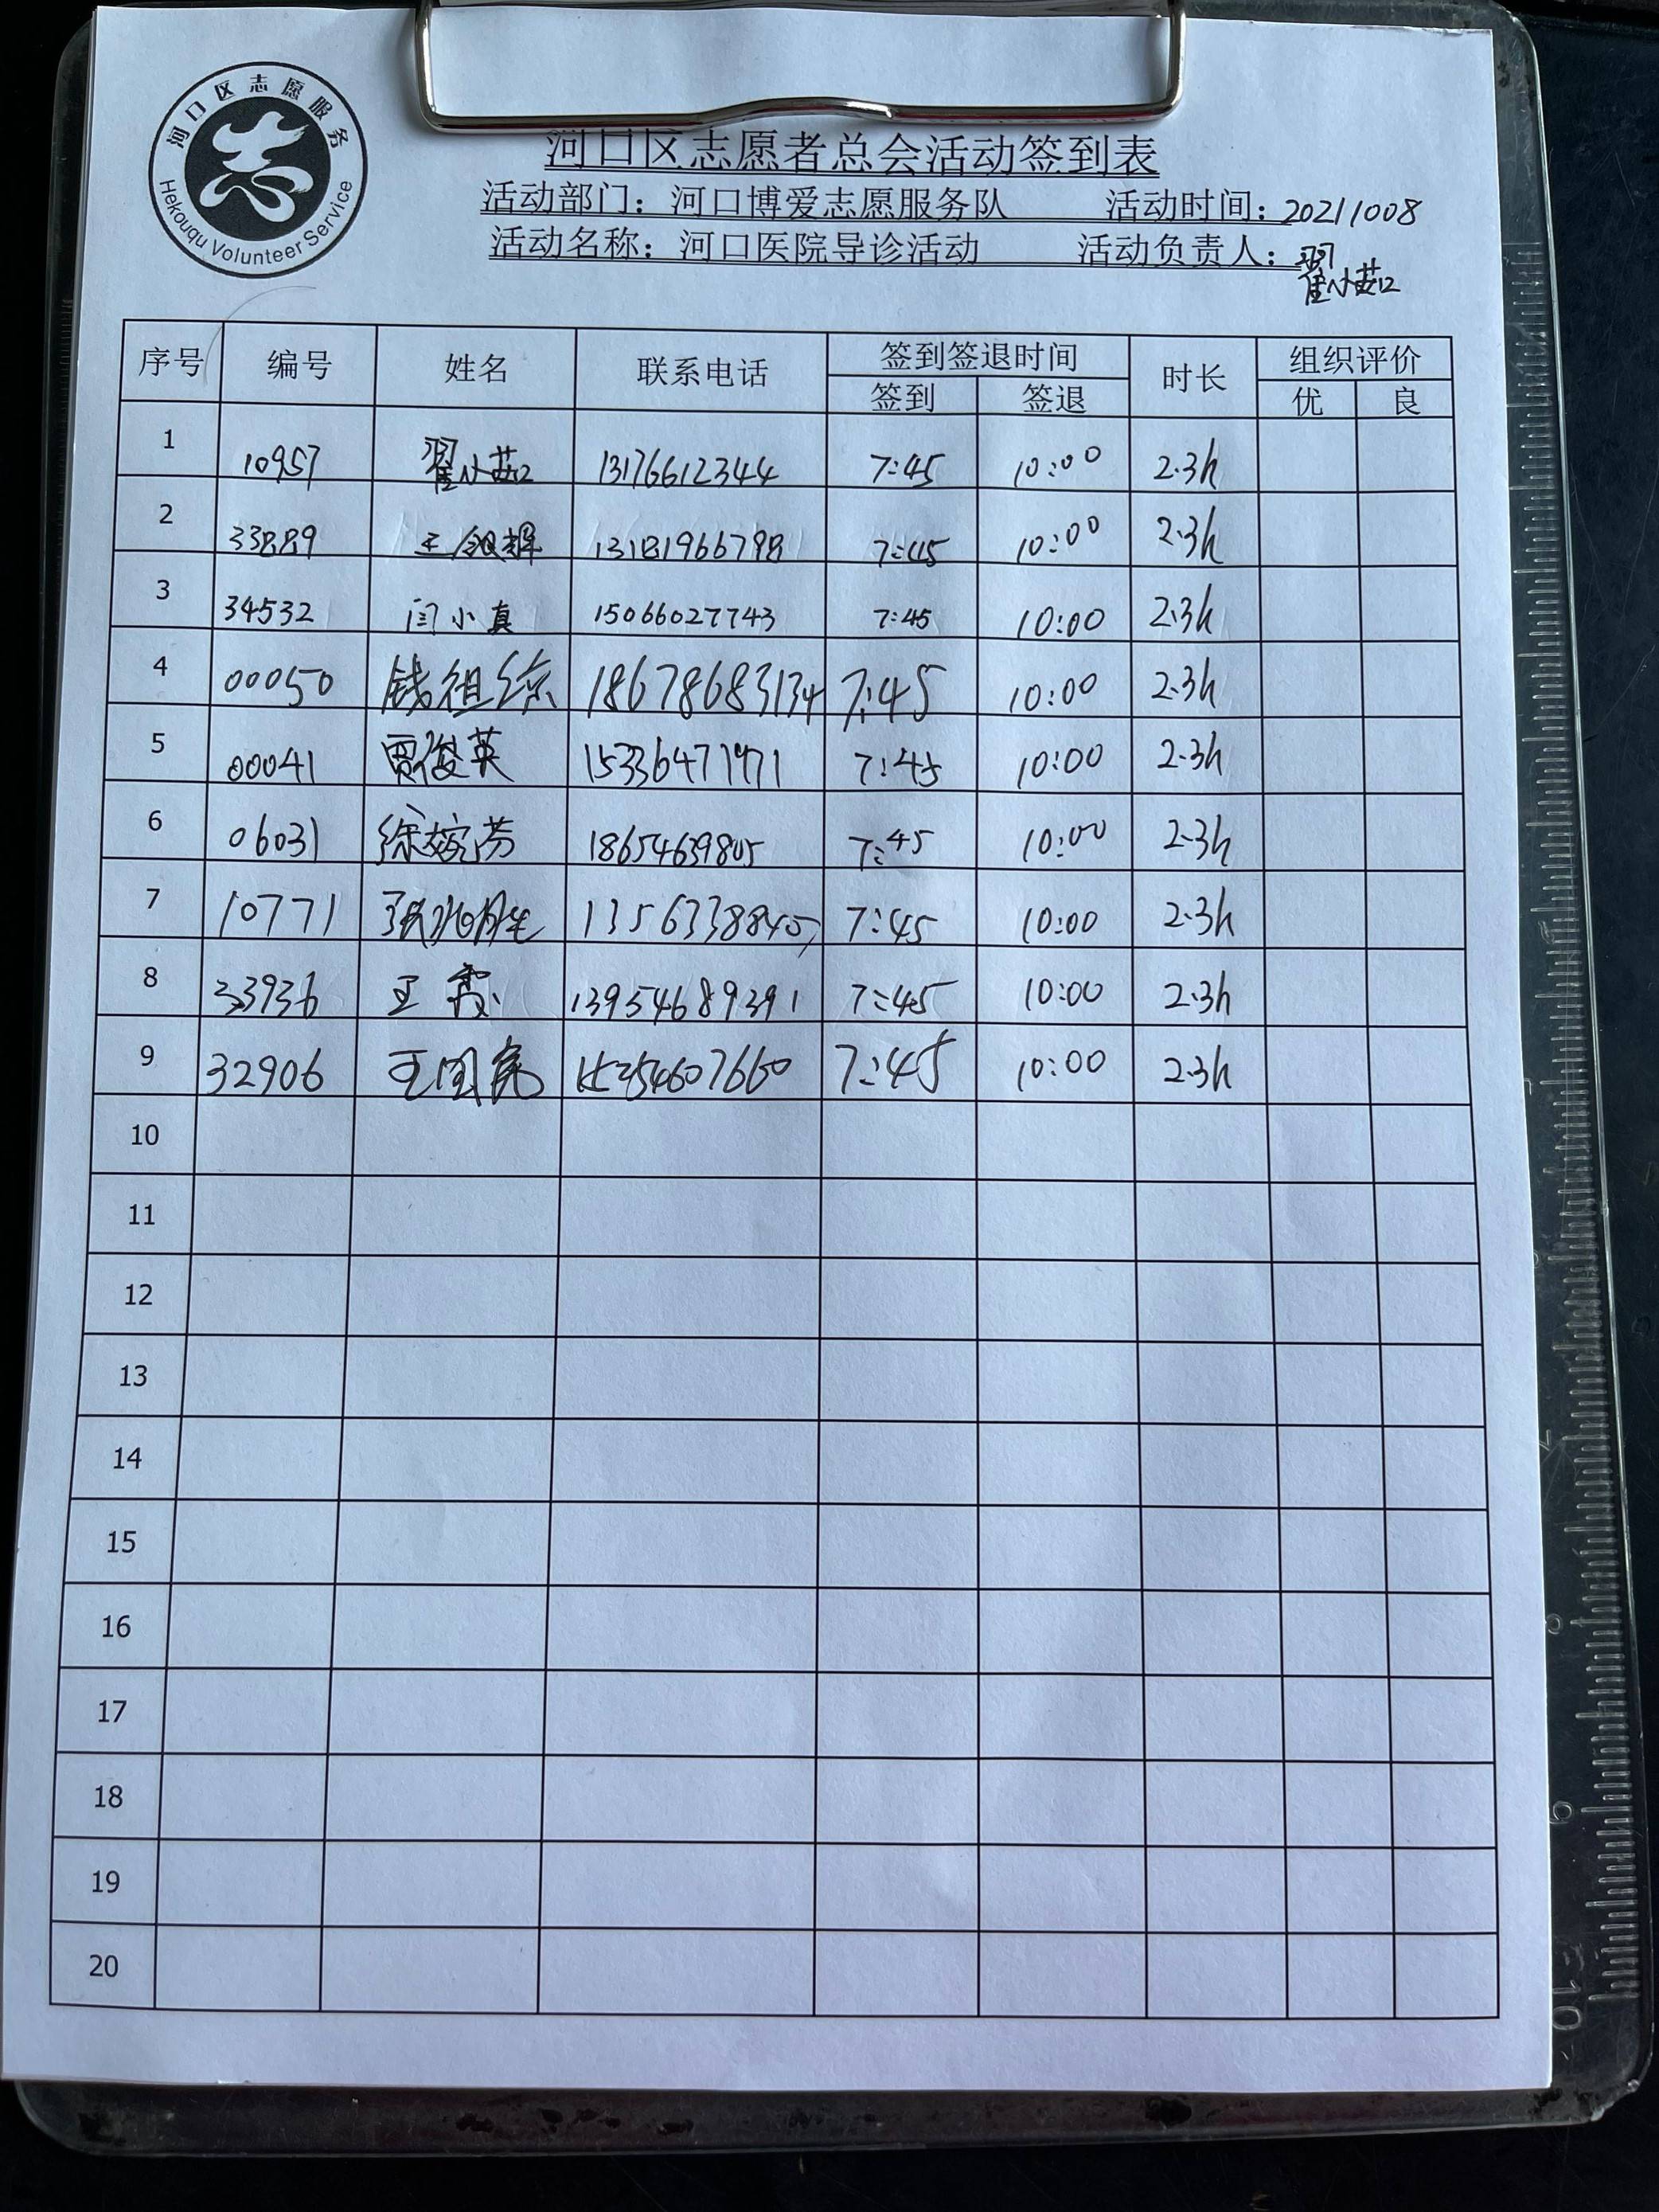 河口区志愿服务
Hekouqu Volunteer Service
河口区志愿者总会活动签到表
活动部门：河口博爱志愿服务队 活动时间：20211008
活动名称：河口医院导诊活动 活动负责人：翟小茹
序号 编号 姓名 联系电话 签到签退时间 时长 组织评价
签到 签退 优 良
1 10957 翟小茹 13176612344 7:45 10:00 2.3h
2 33889 王银辉 13181966798 7:45 10:00 2.3h
3 34532 闫小真 15066027743 7:45 10:00 2.3h
4 00050 钱祖红 18678683134 7:45 10:00 2.3h
5 00041 贾俊英 15336471971 7:45 10:00 2.3h
6 06031 徐婉芳 18654659805 7:45 10:00 2.3h
7 10771 张兆胜 13563388457 7:45 10:00 2.3h
8 33936 王霞 13954689391 7:45 10:00 2.3h
9 32906 王国亮 15254607660 7:45 10:00 2.3h
10
11
12
13
14
15
16
17
18
19
20